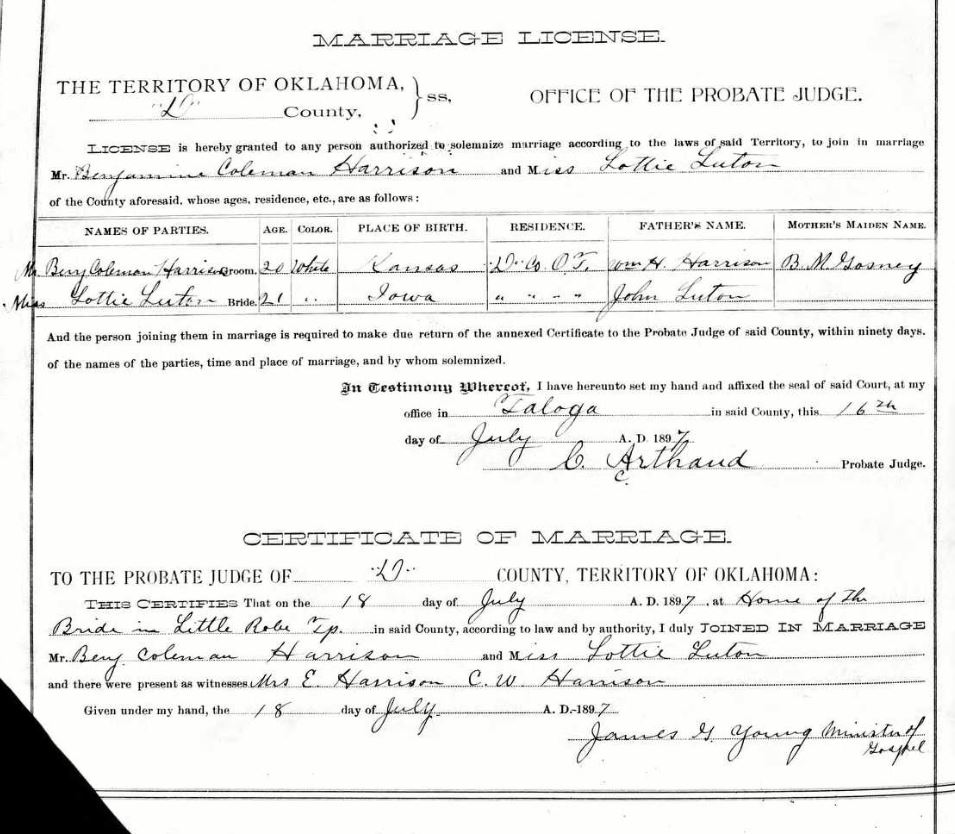 MARRIAGE LICENSE.
THE TERRITORY OF OKLAHOMA, } ss,
"D" County,
OFFICE OF THE PROBATE JUDGE.
LICENSE is hereby granted to any person authorized to solemnize marriage according to the laws of said Territory, to join in marriage
Mr. Benjamine Coleman Harrison and Miss Lottie Luton
of the County aforesaid, whose ages, residence, etc., are as follows:
NAMES OF PARTIES. AGE. COLOR. PLACE OF BIRTH. RESIDENCE. FATHER'S NAME. MOTHER'S MAIDEN NAME.
Mr. Benj Coleman Harrison Groom. 20 White Kansas "D" Co. O.T. Wm H. Harrison B. M. Gosney
Miss Lottie Luton Bride. 21 " Iowa " " " " John Luton
And the person joining them in marriage is required to make due return of the annexed Certificate to the Probate Judge of said County, within ninety days.
of the names of the parties, time and place of marriage, and by whom solemnized.
In Testimony Whereof, I have hereunto set my hand and affixed the seal of said Court, at my
office in Taloga in said County, this 16th
day of July A. D. 1897
C. C. Arthaud Probate Judge.
CERTIFICATE OF MARRIAGE.
TO THE PROBATE JUDGE OF "D" COUNTY, TERRITORY OF OKLAHOMA:
THIS CERTIFIES That on the 18 day of July A. D. 1897, at Home of the
Bride in Little Robe Tp. in said County, according to law and by authority, I duly JOINED IN MARRIAGE
Mr. Benj. Coleman Harrison and Miss Lottie Luton
and there were present as witnesses Mrs E. Harrison C. W Harrison
Given under my hand, the 18 day of July. A. D.-1897
James G. Young Minister of
Gospel